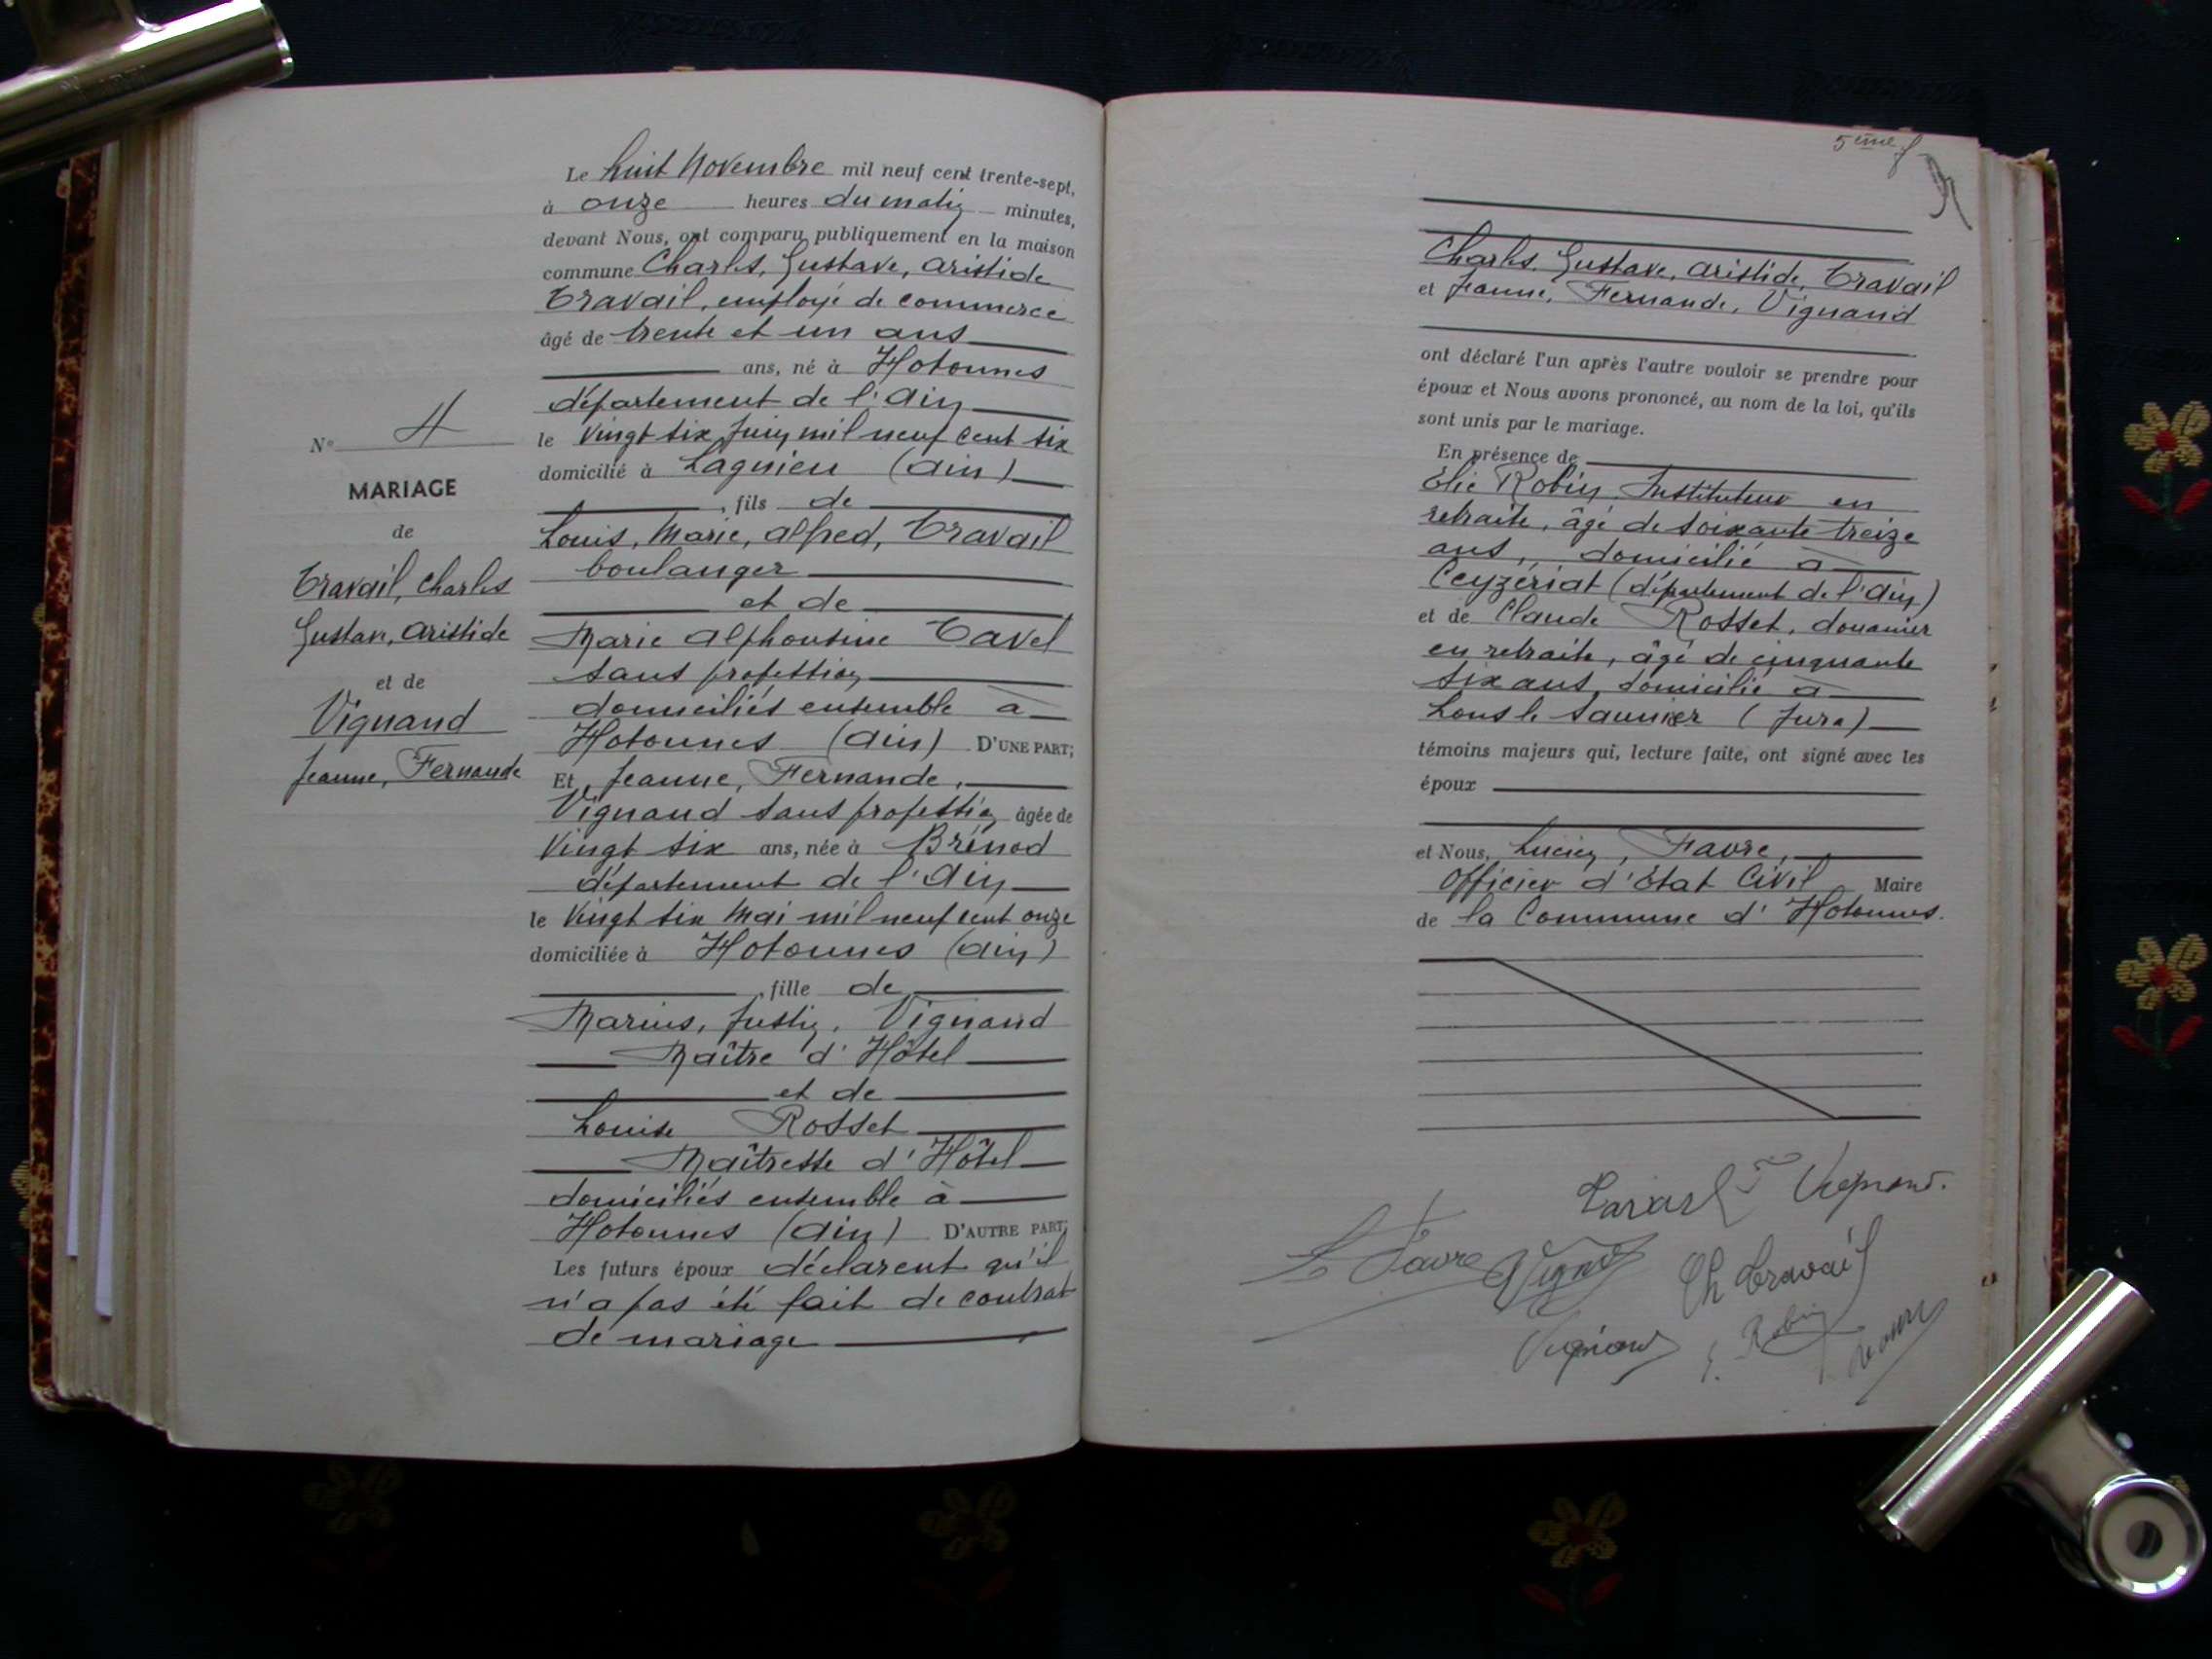 N° 4
MARIAGE
de
Travail, Charles
Gustave, Aristide
et de
Vignand
Jeanne, Fernande
Le huit Novembre mil neuf cent trente-sept,
à onze heures du matin minutes,
devant Nous, ont comparu publiquement en la maison
commune Charles, Gustave, Aristide
Travail, employé de commerce
âgé de trente et un ans
ans, né à Hotonnes
département de l'Ain
le vingt six Juin mil neuf cent six
domicilié à Lagnieu (Ain)
, fils de
Louis, Marie, Alfred, Travail
boulanger
et de
Marie Alphonsine Tavel
sans profession
domiciliés ensemble à
Hotonnes (Ain) D'UNE PART;
Et Jeanne, Fernande,
Vignand sans profession âgée de
vingt six ans, née à Brénod
département de l'Ain
le vingt six Mai mil neuf cent onze
domiciliée à Hotonnes (Ain)
, fille de
Marius, Justin, Vignand
Maître d'Hôtel
et de
Louise Rosset
Maîtresse d'Hôtel
domiciliés ensemble à
Hotonnes (Ain) D'AUTRE PART;
Les futurs époux déclarent qu'il
n'a pas été fait de contrat
de mariage
5ème f
Charles, Gustave, Aristide, Travail
et Jeanne, Fernande, Vignand
ont déclaré l'un après l'autre vouloir se prendre pour
époux et Nous avons prononcé, au nom de la loi, qu'ils
sont unis par le mariage.
En présence de
Elie Robin, Instituteur en
retraite, âgé de soixante treize
ans, domicilié à
Ceyzériat (département de l'Ain)
et de Claude Rosset, douanier
en retraite, âgé de cinquante
six ans, domicilié à
Lons le Saunier (Jura)
témoins majeurs qui, lecture faite, ont signé avec les
époux
et Nous, Lucien, Favre,
Officier d'Etat Civil Maire
de la Commune d'Hotonnes.
Vignand.
L Favre
Ch Travail
Vignand
E. Robin